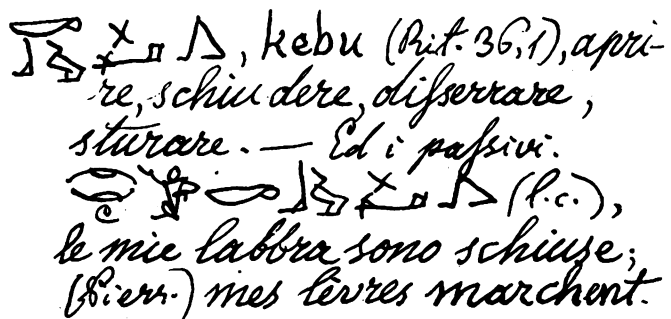 , kebu (Rit. 36,1), apri-
re, schiudere, disserrare,
sturare. — Ed i passivi.
(l.c.),
le mie labbra sono schiuse;
(Pierr.) mes lèvres marchent.